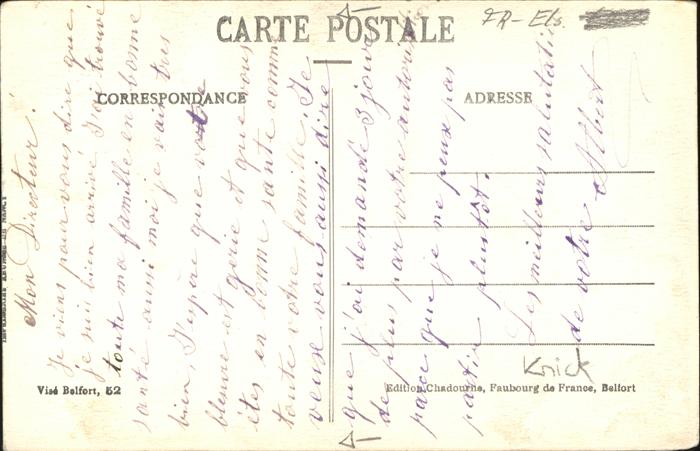 CARTE POSTALE
FR-Els.
CORRESPONDANCE
ADRESSE
Mon Directeur.
Je viens pour vous dire que
je suis bien arrivé. J'ai trouvé
toute ma famille en bonne
santé aussi moi je vais tres
bien, J'espère que votre
blessure est guérie et que vous
êtes en bonne santé comme
toute votre famille. Je
veux vous aussi dire
que j'ai demandé 3 jours
de plus par votre
parce que je ne peux pas
partir plutôt.
Les meilleurs
de votre Albert
Knick
Visé Belfort, 52
Edition Chadourne, Faubourg de France, Belfort